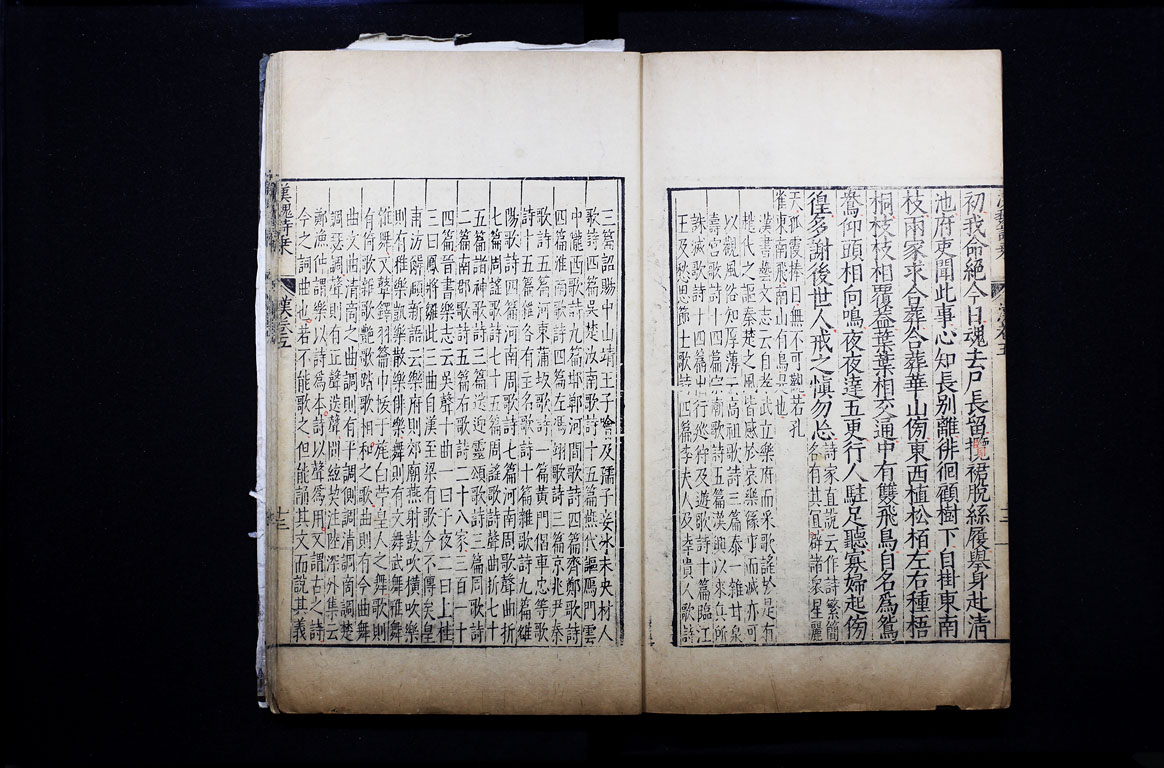 初我命絶今日魂去尸長留攬裙脫絲履舉身赴清
池府吏聞此事心知長別離徘徊顧樹下自掛東南
枝兩家求合葬合葬華山傍東西植松栢左右種梧
桐枝枝相覆葢葉葉相交通中有雙飛鳥自名為鴛
鴦仰頭相向鳴夜夜達五更行人駐足聽寡婦起傍
徨多謝後世人戒之慎勿忘
詩家直說云作詩繁簡
各有其宜辟諸衆星麗
天孤霞捧日無不可觀若孔
雀東南飛南山有鳥是也
漢書藝文志云自孝武立樂府而采歌謠於是有
趙代之謳秦楚之風皆感於哀樂緣事而發亦可
以觀風俗知厚薄云高祖歌詩二篇泰一雜甘泉
壽宮歌詩十四篇宗廟歌詩五篇漢興以來兵所
誅滅歌詩十四篇出行巡狩及遊歌詩十篇臨江
王及愁思節士歌詩四篇李夫人及幸貴人歌詩
三篇詔賜中山靖王子噲及孺子妾冰未央材人
歌詩四篇吳楚汝南歌詩十五篇燕代謳鴈門雲
中隴西歌詩九篇邯鄲河間歌詩四篇齊鄭歌詩
四篇淮南歌詩四篇左馮翊歌詩三篇京兆尹秦
歌詩五篇河東蒲坂歌詩一篇黃門倡車忠等歌
詩十五篇雜各有主名歌詩十篇雜歌詩九篇雒
陽歌詩四篇河南周歌詩七篇河南周歌聲曲折
七篇周謠歌詩七十五篇周謠歌詩聲曲折七十
五篇諸神歌詩三篇送迎靈頌歌詩三篇周歌詩
二篇南郡歌詩五篇右歌詩二十八家三百一十
四篇晉書樂志云吳聲十曲一曰子夜二曰上柱
三曰鳳將雛此三曲自漢至梁有歌今不傳矣皇
甫汸解頤新語云樂府則郊廟燕射鼓吹橫吹樂
則有雅樂歌樂散樂俳樂舞則有文舞武舞雅舞
雜舞又鼙鐸羽籥巾拂于旄白苧皇人之舞歌則
有倚歌新歌艷歌踏歌相和之歌曲則有今曲舞
曲文曲清商之曲調則有平調側調清調商調楚
調瑟調聲則有正聲送聲間絃契注陸深外集云
鄭漁仲謂樂以詩為本詩以聲為用又謂古之詩
今之詞曲也若不能歌之但能誦其文而說其義
漢魏詩乗
漢卷五
十三